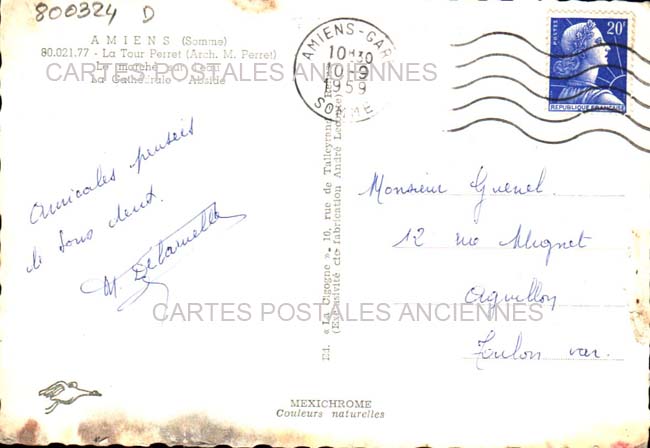 800324 D
AMIENS (Somme)
80.021.77 - La Tour Perret (Arch. M. Perret)
Le marché sur l'eau
La Cathédrale - Abside
CARTES POSTALES ANCIENNES
AMIENS-GARE
10H30
10-9
1959
SOMME
POSTES
20F
REPUBLIQUE FRANÇAISE
Amicales pensées
de tous deux.
M.
Ed. « La Cigogne » - 10, rue de Talleyrand,
(Exclusivité de fabrication André Leconte)
Monsieur Guenel
12 rue Mugnet
Aguillon
Toulon var.
CARTES POSTALES ANCIENNES
MEXICHROME
Couleurs naturelles